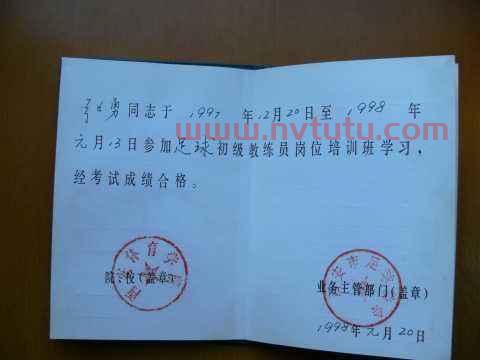 勇同志于 1997 年12月20日至 1998 年
元月13日参加足球初级教练员岗位培训班学习，
经考试成绩合格。
www.nvtutu.com
院、校（盖章）
体育学
业务主管部门（盖章）
市足
1998年元月20日